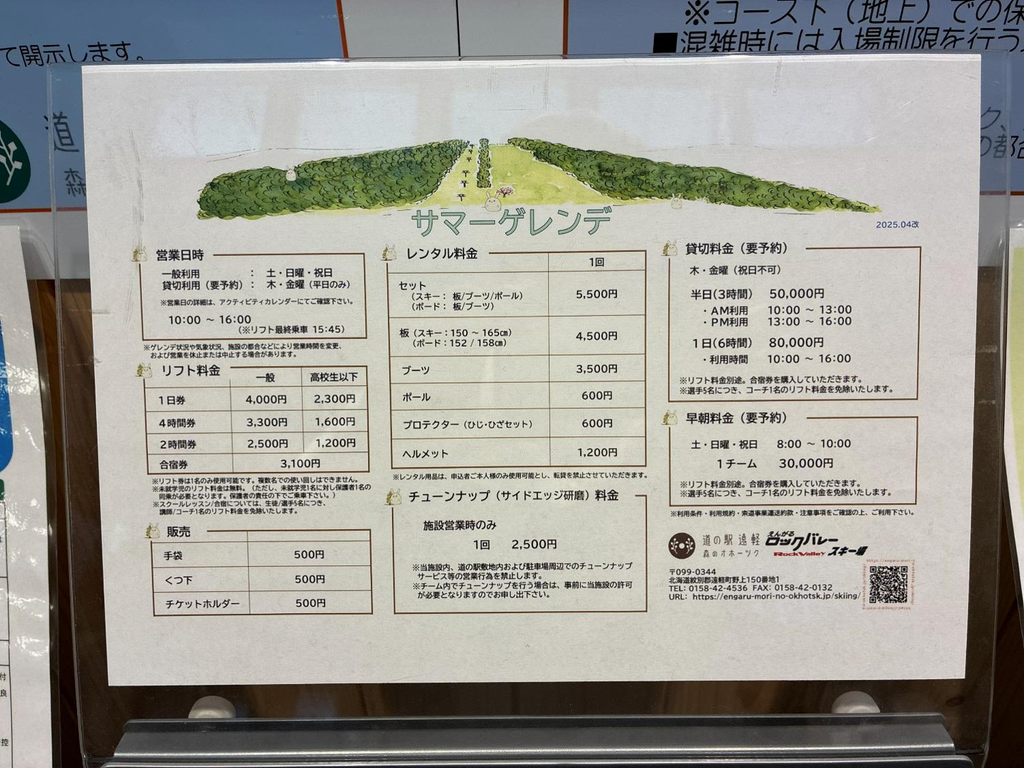 ※コースト（地上）での保
■混雑時には入場制限を行う
て開示します。
道
森
サマーゲレンデ
2025.04改
営業日時
一般利用 ： 土・日曜・祝日
貸切利用（要予約） ： 木・金曜（平日のみ）
※営業日の詳細は、アクティビティカレンダーにてご確認下さい。
10:00 ～ 16:00
（※リフト最終乗車 15:45）
※ゲレンデ状況や気象状況、施設の都合などにより営業時間を変更、
および営業を休止または中止する場合があります。
リフト料金
一般 高校生以下
1日券 4,000円 2,300円
4時間券 3,300円 1,600円
2時間券 2,500円 1,200円
合宿券 3,100円
※リフト券は1名のみ使用可能です。複数名での使い回しはできません。
※未就学児のリフト料金は無料。（ただし、未就学児1名に対し保護者1名の
同乗が必要となります。保護者の責任の下ご乗車下さい。）
※スクールレッスン/合宿については、生徒/選手5名につき、
講師/コーチ1名のリフト料金を免除いたします。
販売
手袋 500円
くつ下 500円
チケットホルダー 500円
レンタル料金
1回
セット
（スキー： 板/ブーツ/ポール）
（ボード： 板/ブーツ）
5,500円
板（スキー：150 ～ 165㎝）
（ボード：152 / 158㎝）
4,500円
ブーツ 3,500円
ポール 600円
プロテクター（ひじ・ひざセット） 600円
ヘルメット 1,200円
※レンタル用品は、申込者ご本人様のみ使用可能とし、転貸を禁止させていただきます。
チューンナップ（サイドエッジ研磨）料金
施設営業時のみ
1回 2,500円
※当施設内、道の駅敷地内および駐車場周辺でのチューンナップ
サービス等の営業行為を禁止します。
※チーム内でチューンナップを行う場合は、事前に当施設の許可
が必要となりますのでお申し出下さい。
貸切料金（要予約）
木・金曜（祝日不可）
半日(3時間) 50,000円
・AM利用 10:00 ～ 13:00
・PM利用 13:00 ～ 16:00
1日(6時間) 80,000円
・利用時間 10:00 ～ 16:00
※リフト料金別途。合宿券を購入していただきます。
※選手5名につき、コーチ1名のリフト料金を免除いたします。
早朝料金（要予約）
土・日曜・祝日 8:00 ～ 10:00
1チーム 30,000円
※リフト料金別途。合宿券を購入していただきます。
※選手5名につき、コーチ1名のリフト料金を免除いたします。
※利用条件・利用規約・索道事業運送約款・注意事項をご確認の上、ご利用下さい。
道の駅 遠軽
森のオホーツク
えんがる
ロックバレー
Rock Valley スキー場
〒099-0344
北海道紋別郡遠軽町野上150番地1
TEL: 0158-42-4536 FAX: 0158-42-0132
URL: https://engaru-mori-no-okhotsk.jp/skiing/